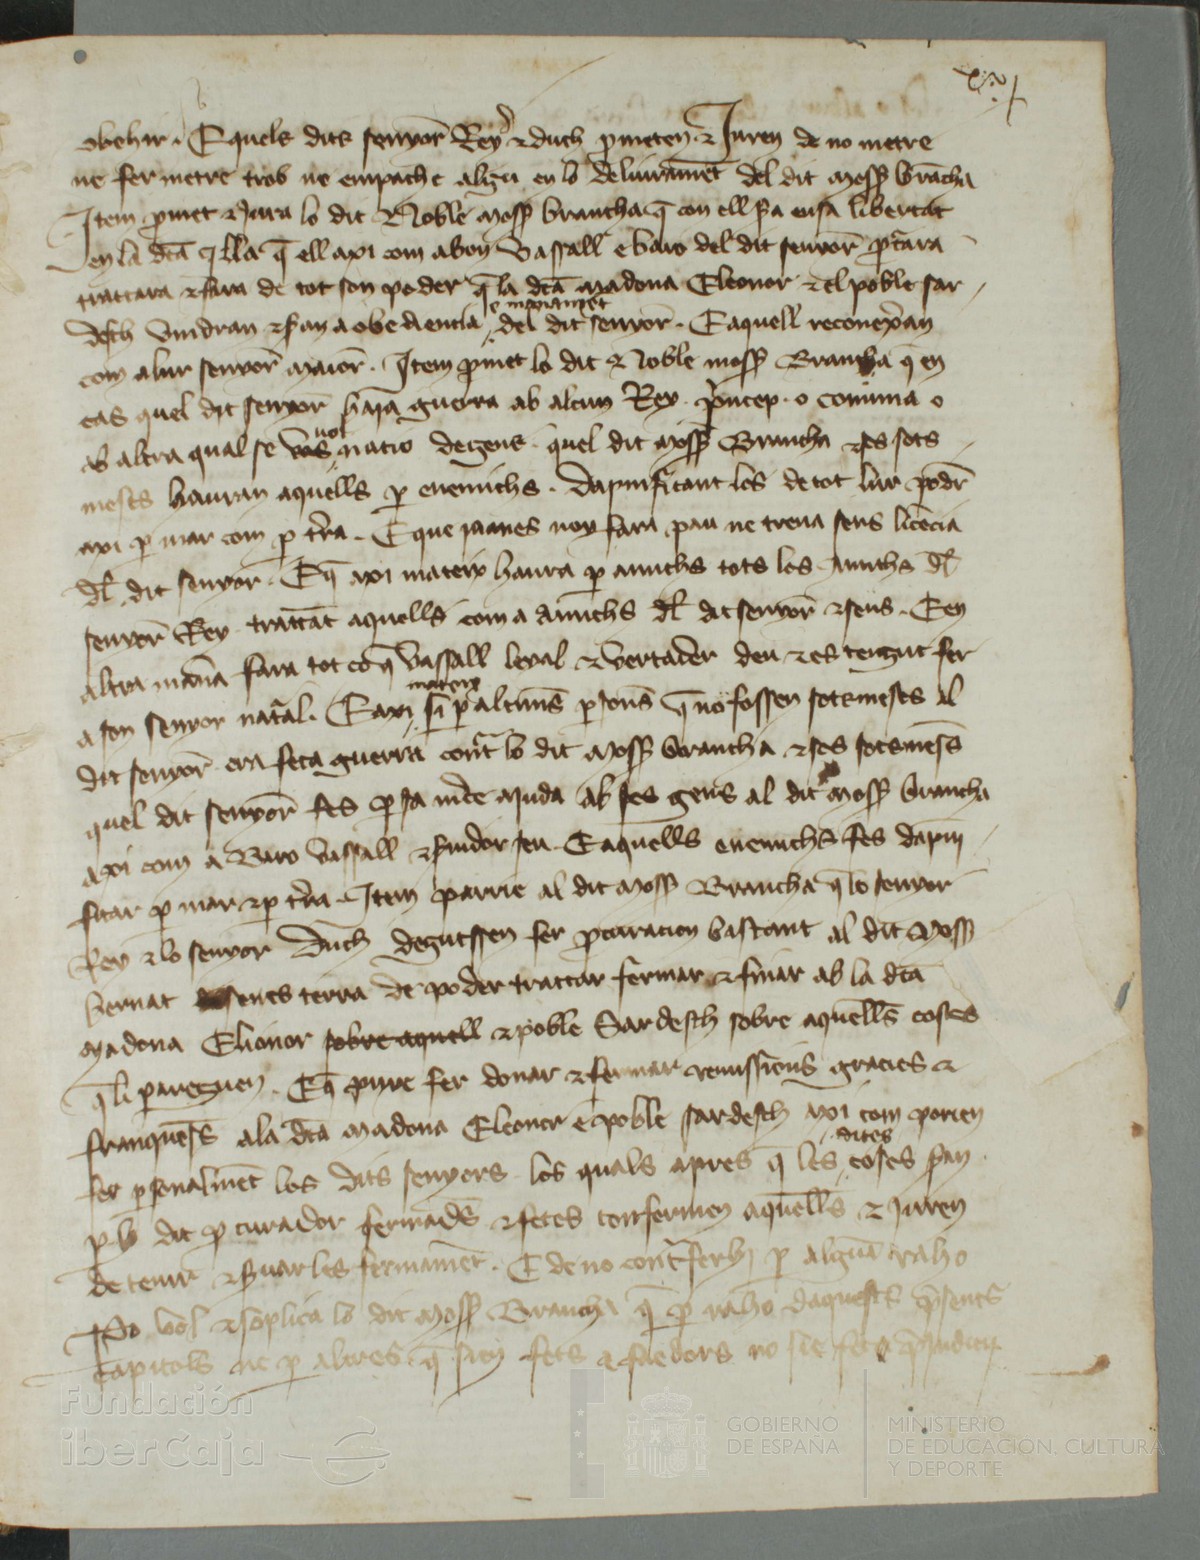 xvj
obehir . E quels dits senyor Rey & duch prometen & Juren de no metre
ne fer metre trob ne empatxe algu en lo deliurament del dit mossen brancha
Item promet & Jura lo dit Noble mossen brancha q con ell sia en sa libertat
en la dita ylla q ell axi com a bon Vassall e baro del dit senyor procurara
trattara & fara de tot son poder q la dita madona Eleonor & el poble sar
desch vindran & seran a obediencia e manament del dit senyor . E aquell reconexeran
com a lur senyor maior . Item promet lo dit Noble mossen Brancha q en
cas quel dit senyor haia guerra ab alcun Rey . princep . o comuna o
ab altra qual se vol natio de gens . quel dit mossen Brancha & es sots
meses hauran aquells per enemichs . dapnificant los de tot lur poder
axi per mar com per terra . E que james noy fara pau ne treua sens licencia
del dit senyor . E q axi mateix haura per amichs tots los amichs del
senyor Rey trattant aquells com a amichs del dit senyor & seus . E en
altra manera fara tot ço q vassall leyal & vertader deu & es tengut fer
a son senyor natural . E axi mateix si per alcuns persones q no fossen sotsmeses al
dit senyor era feta guerra contra lo dit mossen brancha & sos sotsmeses
quel dit senyor fes per sa merce ajuda ab ses gens al dit mossen brancha
axi com a Baro vassall & seruidor seu . E aquells enemichs fes dapni
ficar per mar & per terra . Item parrie al dit mossen Brancha q lo senyor
Rey & lo senyor Duch deguessen fer procuracion bastant al dit mossen
bernat senesterra de poder trattar fermar & finar ab la dita
madona Elionor sobre aquell & poble Sardesch sobre aquelles coses
q li pareguen . E q puxe fer donar & fermar remissions gracies &
franqueses a la dita madona Eleonor e poble sardesch axi com porien
fer personalment los dits senyors . los quals apres q les dites coses seran
per lo dit procurador fermades & fetes confermen aquelles & Juren
de tenir & seruar les fermament . E de no contrafer hi per alguna raho
Po vol & soplica lo dit mossen Brancha q per raho daquests presents
capitols ne per altres q sien fets e faedors no sie feta preiudici
Fundación
iberCaja
GOBIERNO
DE ESPAÑA
MINISTERIO
DE EDUCACIÓN, CULTURA
Y DEPORTE